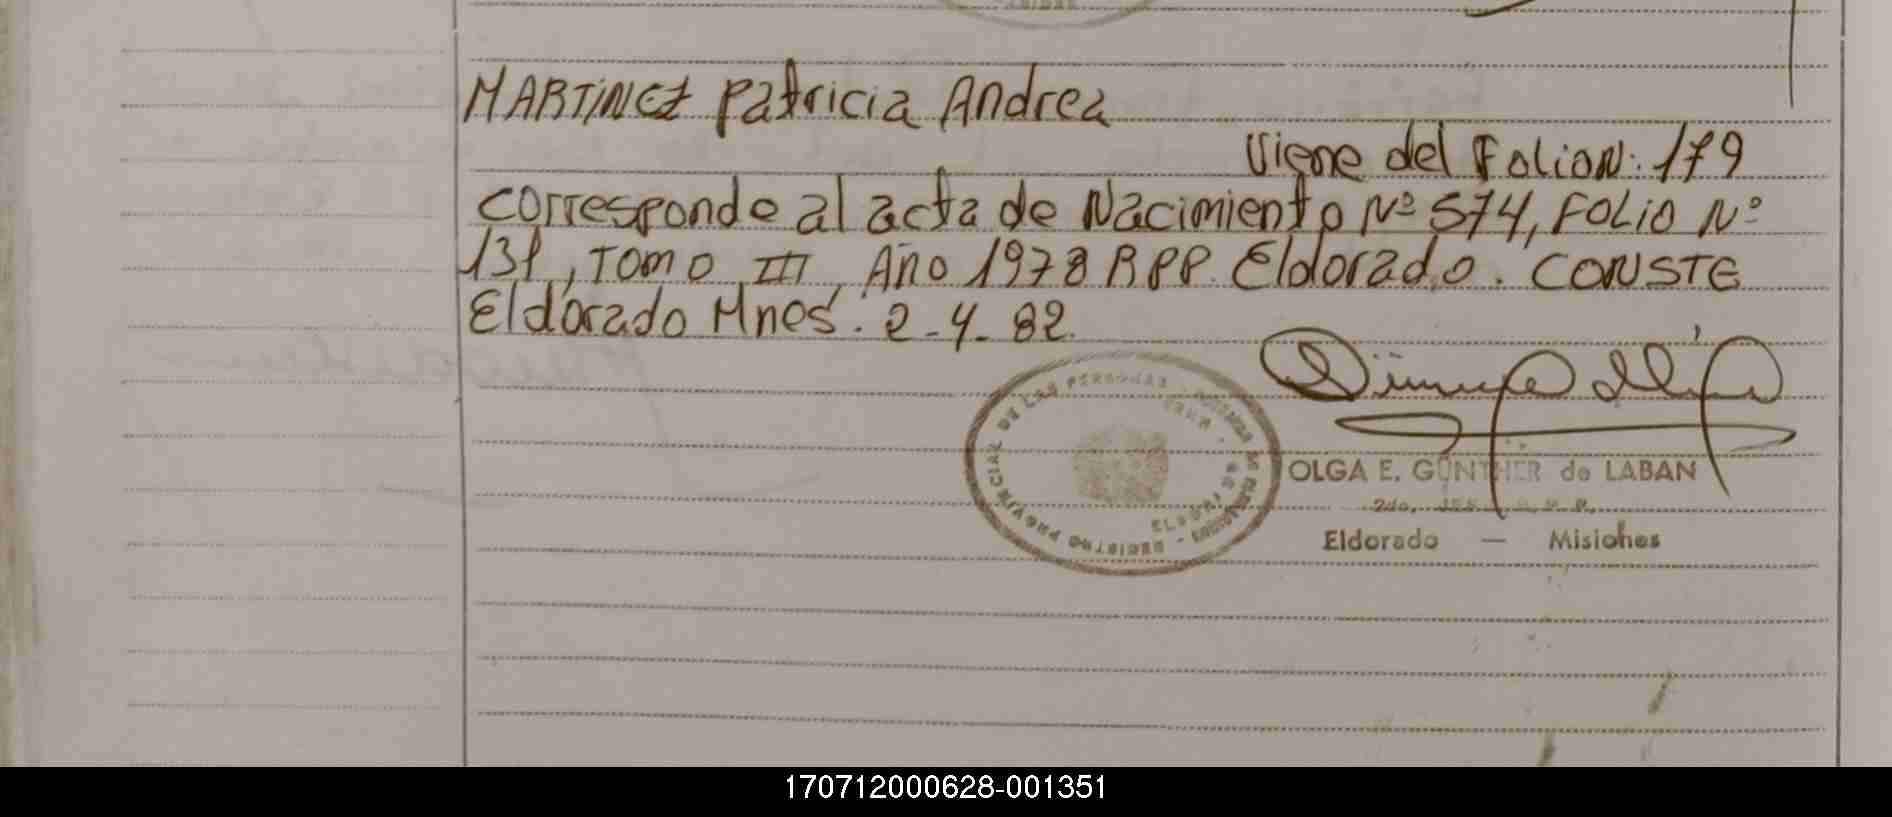 MARTINEZ Patricia Andrea
Viene del Folio N: 179
Corresponde al acta de Nacimiento Nº 574, FOLIO Nº
131, TOMO III, Año 1978 RPP. Eldorado. CONSTE
Eldorado Mnes. 2-4-82.
REGISTRO PROVINCIAL DE LAS PERSONAS
OLGA E. GÜNTHER de LABAN
2do.
Eldorado — Misiones
170712000628-001351